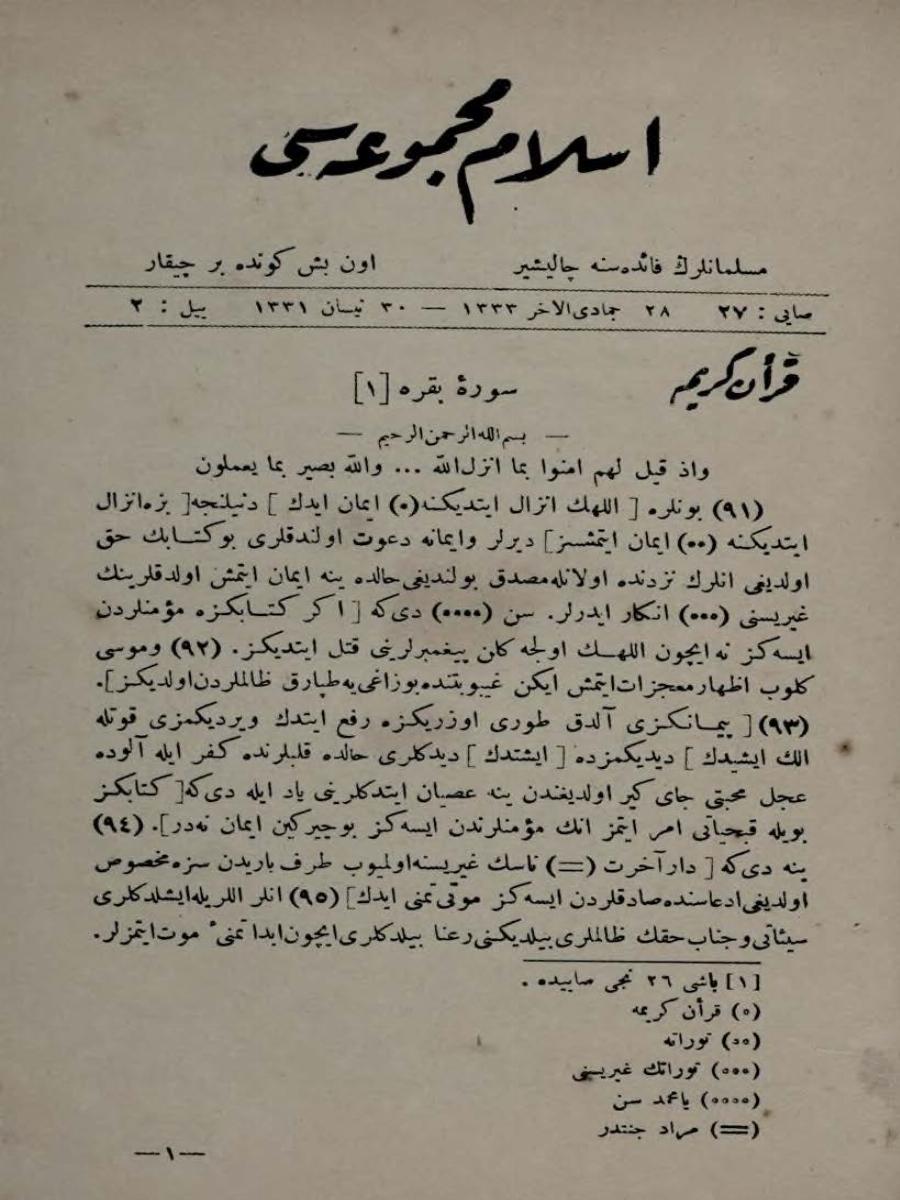 اسلام مجموعه سی
مسلمانلرك فائده سنه چالیشیر اون بش كونده بر چیقار
صایی : ٢٧ ٢٨ جمادی الاخر ١٣٣٣ — ٣٠ نیسان ١٣٣١ ییل : ٢
قرآن كریمه
سورهٔ بقره [١]
— بسم الله الرحمن الرحیم —
واذ قیل لهم امنوا بما انزل الله ... والله بصیر بما یعملون
(٩١) بونلره [ اللهك انزال ایتدیكنه(०) ایمان ایدك ] دنیلنجه[ بزه انزال
ایتدیكنه (००) ایمان ایتمشسز] دیرلر وایمانه دعوت اولندقلری بو كتابك حق
اولدیغی انلرك نزدنده اولانله مصدق بولندیغی حالده ینه ایمان ایتمش اولدقلرینك
غیریسنی (०००) انكار ایدرلر. سن (००००) دی كه [ اكر كتابكزه مؤمنلردن
ایسه كز نه ایچون اللهك اولجه كان پیغمبرلرینی قتل ایتدیكز. (٩٢) وموسی
كلوب اظهار معجزات ایتمش ایكن غیبوبتنده بوزاغی یه طپارق ظالملردن اولدیكز].
(٩٣) [ پیمانكزی آلدق طوری اوزریكزه رفع ایتدك ویردیكمزی قوتله
الك ایشیدك ] دیدیكمزده [ ایشتدك ] دیدكلری حالده قلبلرنده كفر ایله آلوده
عجل محبتی جای كیر اولدیغندن ینه عصیان ایتدكلرینی یاد ایله دی كه[ كتابكز
بویله قبحیاتی امر ایتمز انك مؤمنلرندن ایسه كز بو جیركین ایمان نه در]. (٩٤)
ینه دی كه [ دار آخرت (=) ناسك غیریسنه اولمیوب طرف باریدن سزه مخصوص
اولدیغی ادعاسنده صادقلردن ایسه كز موتی تمنی ایدك] (٩٥) انلر اللریله ایشلدكلری
سیئاتی و جناب حقك ظالملری بیلدیكنی رعنا بیلدكلری ایچون ابدا تمنیٔ موت ایتمزلر.
[١] باشی ٢٦ نجی صاییده .
(०) قرأن كریمه
(००) توراته
(०००) توراتك غیریسنی
(००००) یا محمد سن
(=) مراد جنتدر
— ١ —